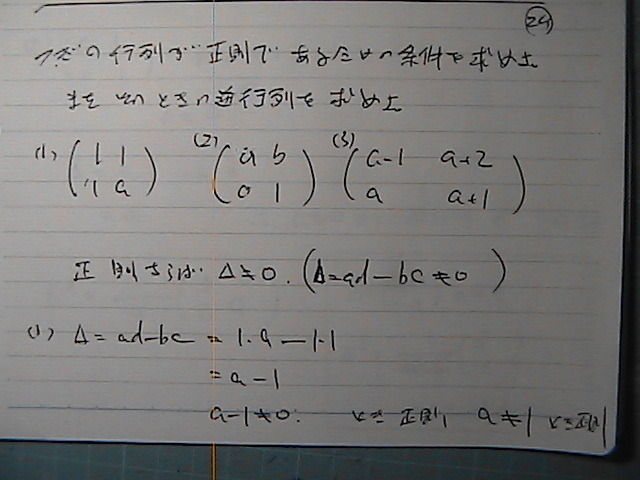 (24)
つぎの行列が正則であるための条件を求めよ
またそのときの逆行列を求めよ
(1) (1 1 / 1 a) (2) (a b / 0 1) (3) (a-1 a+2 / a a+1)
正則ならば Δ≠0. (Δ=ad-bc≠0)
(1) Δ=ad-bc = 1·a-1·1
= a-1
a-1≠0. 正則, a≠1 正則